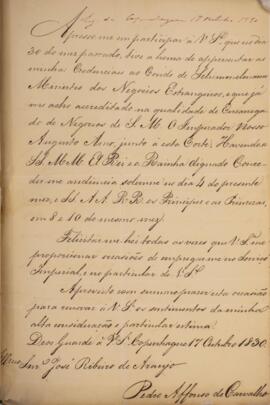 Apresso-me em participar a V. Sª. que no dia
30 do mez passado, tive a honra de apresentar as
minhas Credenciaes ao Conde de Schimmelmann
Ministro dos Negocios Estrangeiros, e que já
me acho acreditado na qualidade de Encarrega-
do de Negocios de S. M. O Imperador, Nosso
Augusto Amo, junto a esta Corte. Havendo
S S. M M. El Rei e a Rainha dignado Conce-
der-me audiencia solemne no dia 4 do presente
mez, e S S. A A. R R. os Principes e as Princezas,
em 8 e 10 do mesmo mez.
Felicitar-me-hei todas as vezes que V. Sª. me
proporcionar occasiões de empregar-me no Serviço
Imperial, e no particular de V. Sª.
Aproveito com summo prazer esta occasião
para renovar a V. Sª. os sentimentos da minha
alta consideração e particular estima.
Deos Guarde a V. Sª. Copenhague 17 Outubro 1830.
Illmo. Snr. José Ribeiro de Araujo
Pedro Affonso de Carvalho